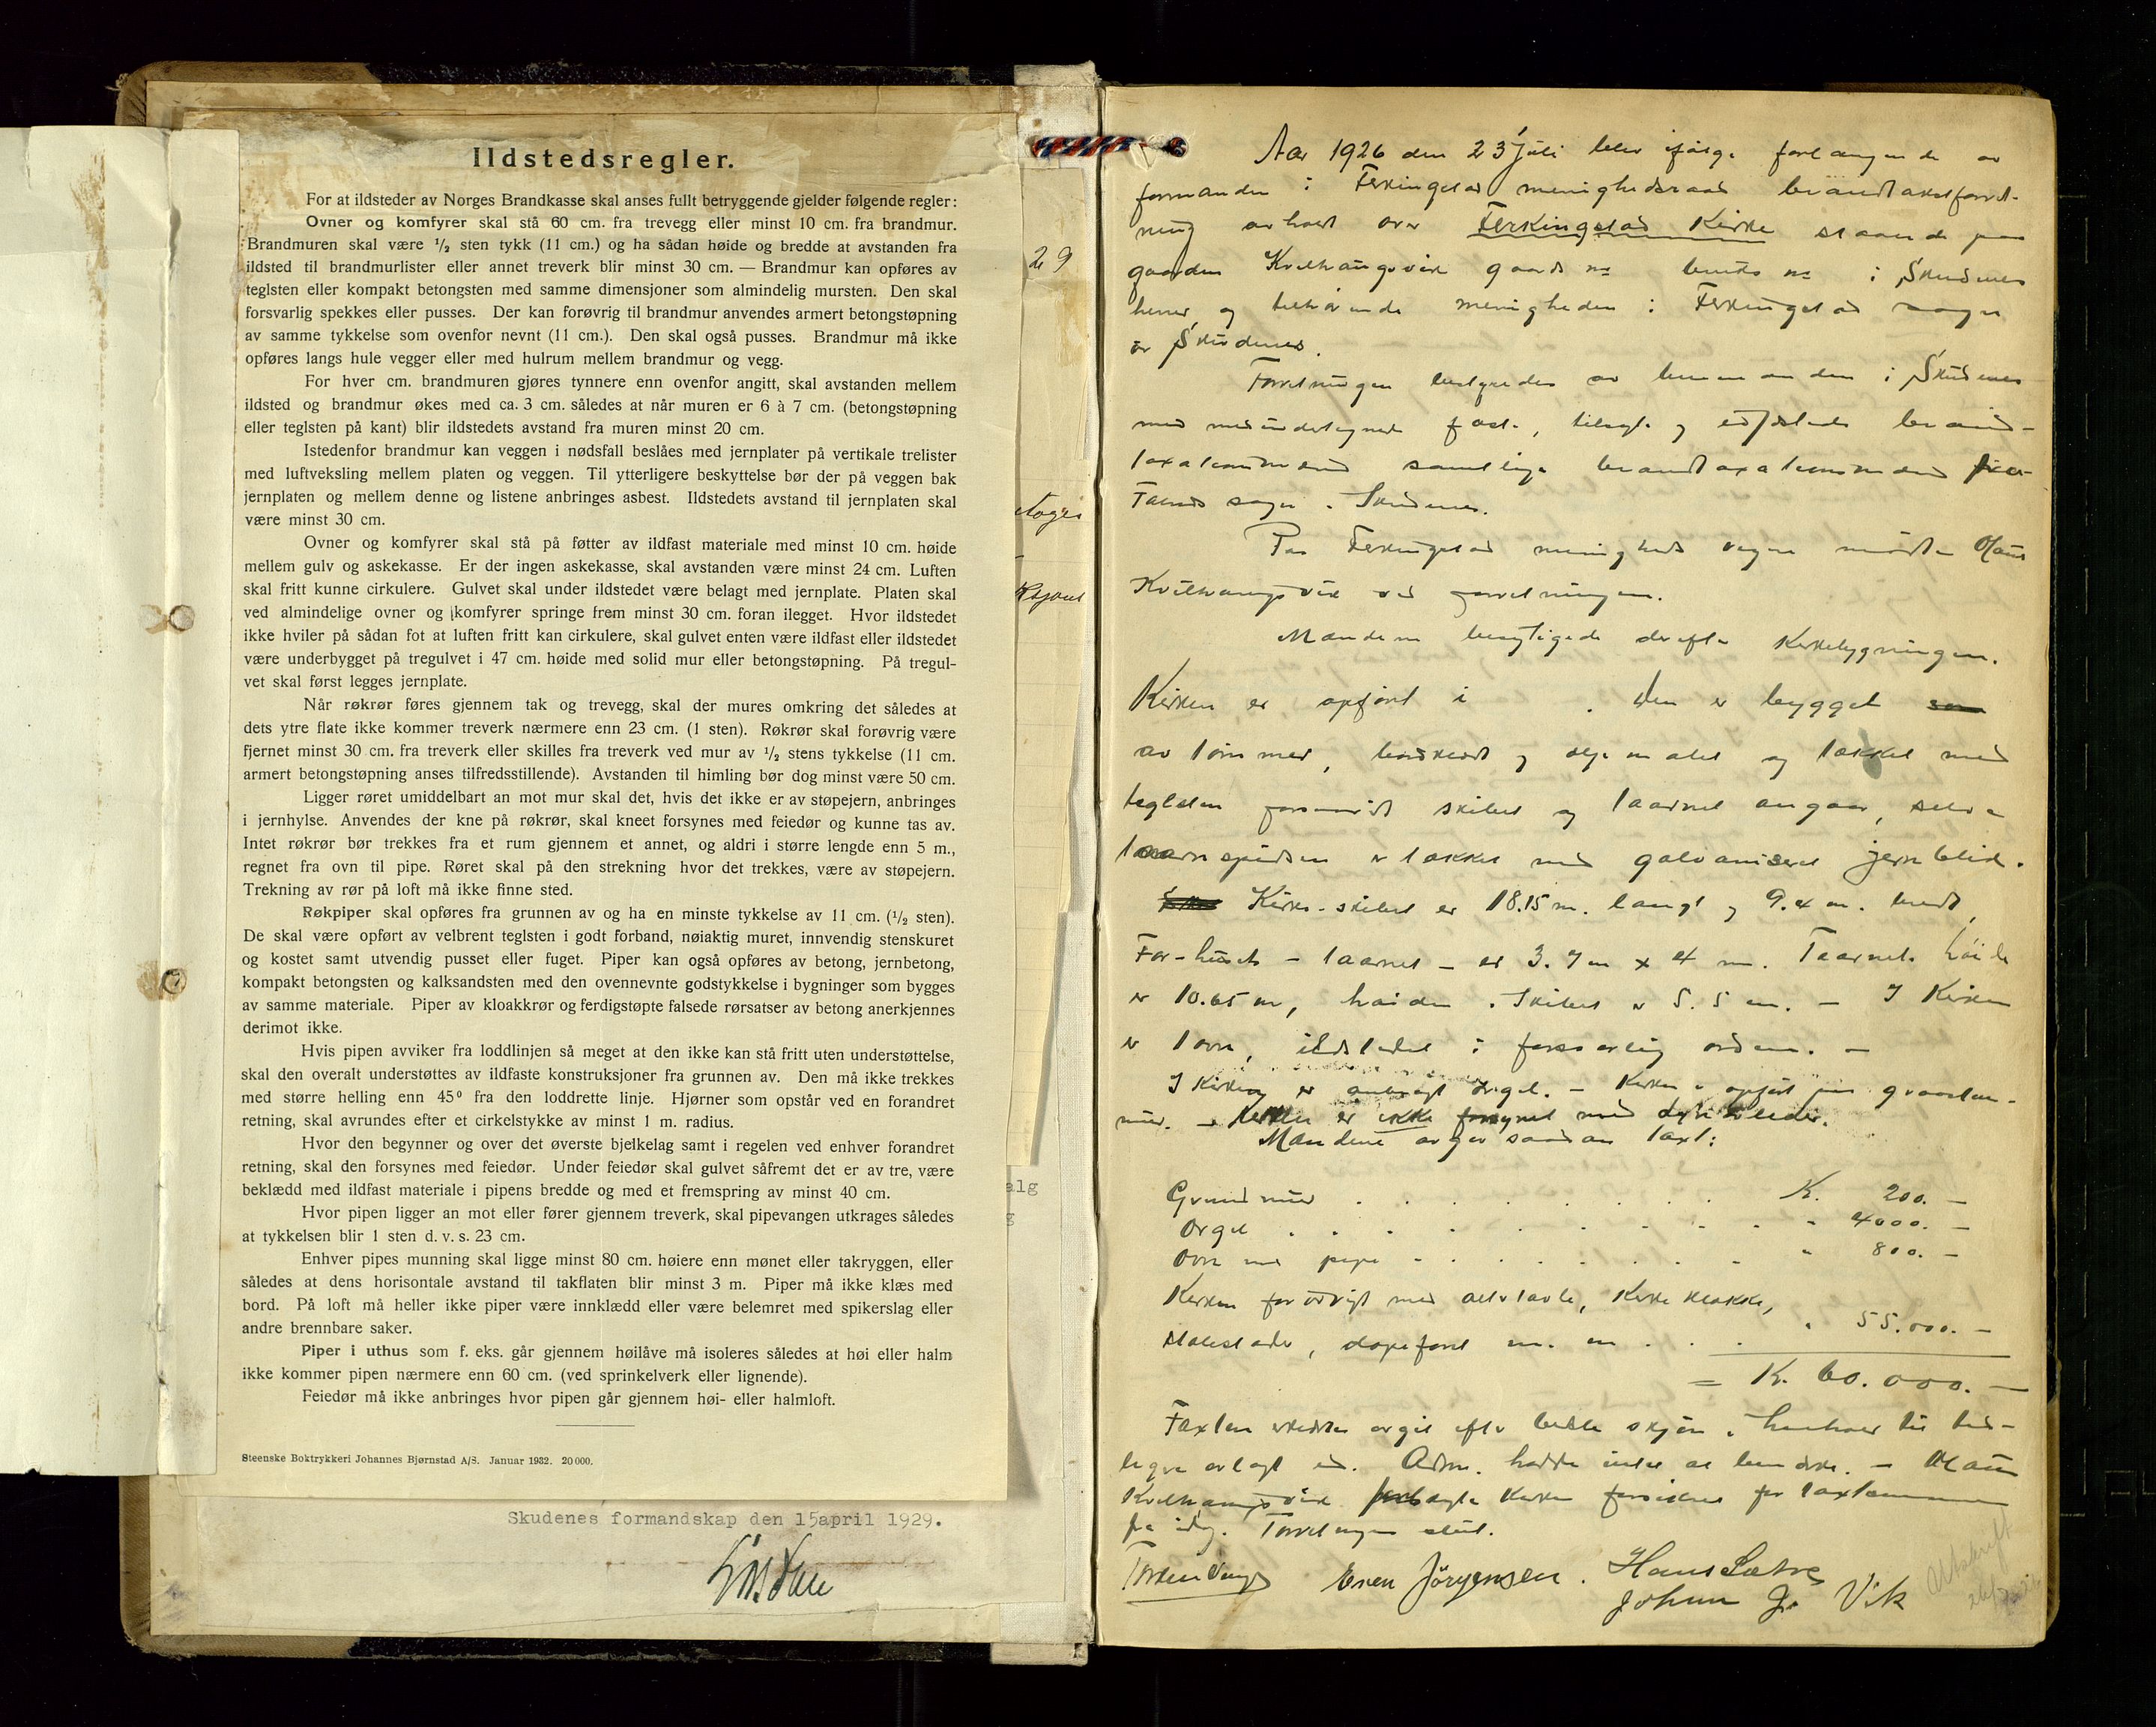 Ildstedsregler.
For at ildsteder av Norges Brandkasse skal anses fullt betryggende gjelder følgende regler:
Ovner og komfyrer skal stå 60 cm. fra trevegg eller minst 10 cm. fra brandmur.
Brandmuren skal være 1/2 sten tykk (11 cm.) og ha sådan høide og bredde at avstanden fra
ildsted til brandmurlister eller annet treverk blir minst 30 cm. — Brandmur kan opføres av
teglsten eller kompakt betongsten med samme dimensjoner som almindelig mursten. Den skal
forsvarlig spekkes eller pusses. Der kan forøvrig til brandmur anvendes armert betongstøpning
av samme tykkelse som ovenfor nevnt (11 cm.). Den skal også pusses. Brandmur må ikke
opføres langs hule vegger eller med hulrum mellem brandmur og vegg.
For hver cm. brandmuren gjøres tynnere enn ovenfor angitt, skal avstanden mellem
ildsted og brandmur økes med ca. 3 cm. således at når muren er 6 à 7 cm. (betongstøpning
eller teglsten på kant) blir ildstedets avstand fra muren minst 20 cm.
Istedenfor brandmur kan veggen i nødsfall beslåes med jernplater på vertikale trelister
med luftveksling mellem platen og veggen. Til ytterligere beskyttelse bør der på veggen bak
jernplaten og mellem denne og listene anbringes asbest. Ildstedets avstand til jernplaten skal
være minst 30 cm.
Ovner og komfyrer skal stå på føtter av ildfast materiale med minst 10 cm. høide
mellem gulv og askekasse. Er der ingen askekasse, skal avstanden være minst 24 cm. Luften
skal fritt kunne cirkulere. Gulvet skal under ildstedet være belagt med jernplate. Platen skal
ved almindelige ovner og komfyrer springe frem minst 30 cm. foran ilegget. Hvor ildstedet
ikke hviler på sådan fot at luften fritt kan cirkulere, skal gulvet enten være ildfast eller ildstedet
være underbygget på tregulvet i 47 cm. høide med solid mur eller betongstøpning. På tregul-
vet skal først legges jernplate.
Når røkrør føres gjennem tak og trevegg, skal der mures omkring det således at
dets ytre flate ikke kommer treverk nærmere enn 23 cm. (1 sten). Røkrør skal forøvrig være
fjernet minst 30 cm. fra treverk eller skilles fra treverk ved mur av 1/2 stens tykkelse (11 cm.
armert betongstøpning anses tilfredsstillende). Avstanden til himling bør dog minst være 50 cm.
Ligger røret umiddelbart an mot mur skal det, hvis det ikke er av støpejern, anbringes
i jernhylse. Anvendes der kne på røkrør, skal kneet forsynes med feiedør og kunne tas av.
Intet røkrør bør trekkes fra et rum gjennem et annet, og aldri i større lengde enn 5 m.,
regnet fra ovn til pipe. Røret skal på den strekning hvor det trekkes, være av støpejern.
Trekning av rør på loft må ikke finne sted.
Røkpiper skal opføres fra grunnen av og ha en minste tykkelse av 11 cm. (1/2 sten).
De skal være opført av velbrent teglsten i godt forband, nøiaktig muret, innvendig stenskuret
og kostet samt utvendig pusset eller fuget. Piper kan også opføres av betong, jernbetong,
kompakt betongsten og kalksandsten med den ovennevnte godstykkelse i bygninger som bygges
av samme materiale. Piper av kloakkrør og ferdigstøpte falsede rørsatser av betong anerkjennes
derimot ikke.
Hvis pipen avviker fra loddlinjen så meget at den ikke kan stå fritt uten understøttelse,
skal den overalt understøttes av ildfaste konstruksjoner fra grunnen av. Den må ikke trekkes
med større helling enn 45° fra den loddrette linje. Hjørner som opstår ved en forandret
retning, skal avrundes efter et cirkelstykke av minst 1 m. radius.
Hvor den begynner og over det øverste bjelkelag samt i regelen ved enhver forandret
retning, skal den forsynes med feiedør. Under feiedør skal gulvet såfremt det er av tre, være
beklædd med ildfast materiale i pipens bredde og med et fremspring av minst 40 cm.
Hvor pipen ligger an mot eller fører gjennem treverk, skal pipevangen utkrages således
at tykkelsen blir 1 sten d. v. s. 23 cm.
Enhver pipes munning skal ligge minst 80 cm. høiere enn mønet eller takryggen, eller
således at dens horisontale avstand til takflaten blir minst 3 m. Piper må ikke klæs med
bord. På loft må heller ikke piper være innklædd eller være belemret med spikerslag eller
andre brennbare saker.
Piper i uthus som f. eks. går gjennem høilåve må isoleres således at høi eller halm
ikke kommer pipen nærmere enn 60 cm. (ved sprinkelverk eller lignende).
Feiedør må ikke anbringes hvor pipen går gjennem høi- eller halmloft.
Steenske Boktrykkeri Johannes Bjørnstad A/S. Januar 1932. 20 000.
alg
Skudenes formandskap den 15april 1929.
Aar 1926 den 23 Juli blev ifølge forlangende av
formanden i Ferkingstad menighedsraad brandtaxtforret-
ning avholdt over Ferkingstad Kirke staaende paa
gaarden Kvilhaugsvik gaards no bruks no i Skudenes
herred og tilhørende menigheden i Ferkingstad sogn
av Skudenes.
Forretningen bestyredes av lensmanden i Skudenes
med medundertegnede faste, tilsagte og edfæstede brand-
taxationsmænd samtlige brandtaxationsmænd for
Falnes sogn i Skudenes.
Paa Ferkingstad menigheds vegne mødte Hans
Kvilhaugsvik ved forretningen.
Mændene besigtigede derefter Kirkebygningen.
Kirken er opført i . Den er bygget som
av tømmer, bordklædt og oljemalet og takket med
teglsten forsaavidt skibet og taarnet angaar, selve
taarnspidsen er takket med galvaniseret jernblik.
Kirke-skibet er 18.15 m. langt og 9.4 m. bredt,
For-huset - taarnet - er 3.7 m x 4 m. Taarnets høide
er 10.65 m, høiden i Skibet er 5.5 m. - I Kirken
er 1 ovn, ildstedet i forsvarlig orden. -
I Kirken er anbragt orgel. - Kirken er opført paa graasten-
mur. - Kirken er ikke forsynet med lynavleder.
Mændene avgav saadan taxt:
Grundmur . . . . . . . . K. 200. -
Orgel . . . . . . . . . " 4000. -
Ovn med pipe . . . . . . . " 800. -
Kirken forøvrigt med altertavle, Kirkeklokke,
stolestader, døpefont m. m. . . . " 55.000. -
= K. 60.000. -
Taxten erklærtes avgit efter bedste skjøn i henhold til tid-
ligere avlagt ed. Adm. hadde intet at bemerke. - Hans
Kvilhaugsvik forlangte Kirken forsikret for taxtsummen
fra idag. Forretningen slut.
Even Jørgensen. Hans Sætre
Johan J. Vik